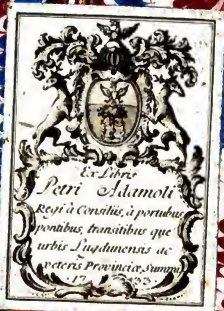 Ex Libris
Petri Adamoli
Regi à Consiliis, à portubus
pontibus, transitibus que
urbis Lugdunensis ac
veteris Provinciæ Summi
17 33